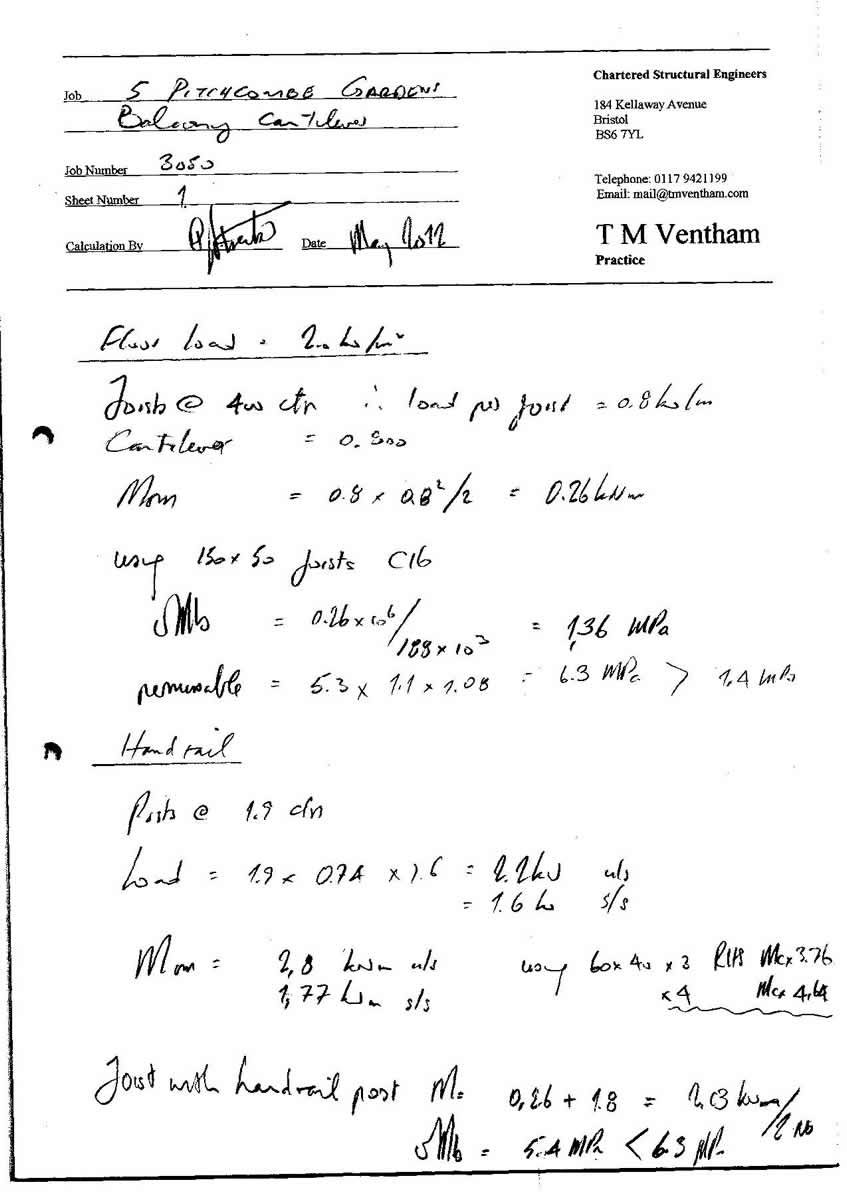 Chartered Structural Engineers
184 Kellaway Avenue
Bristol
BS6 7YL
Telephone: 0117 9421199
Email: mail@tmventham.com
T M Ventham
Practice
Job 5 PITCHCOMBE GARDENS
Balcony Cantilever
Job Number 3050
Sheet Number 1
Calculation By Date May 2012
Floor load = 2.0 kN/m²
Joists @ 400 ctrs ∴ load per joist = 0.8 kN/m
Cantilever = 0.800
Mom = 0.8 x 0.8²/2 = 0.26 kNm
using 150 x 50 joists C16
σMb = 0.26 x 10⁶/188 x 10³ = 1,36 MPa
permissable = 5.3 x 1.1 x 1.08 = 6.3 MPa > 1.4 MPa
Handrail
Posts @ 1.9 ctrs
Load = 1.9 x 0.74 x 1.6 = 2.2 kN u/s
= 1.6 kN s/s
Mom = 2,8 kNm u/s using 60 x 40 x 3 RHS Mcx 3.76
1,77 kNm s/s x 4 Mcx 4,64
Joist with handrail post M = 0,26 + 1.8 = 2,03 kNm/2 No
σMb = 5.4 MPa < 6.3 MPa